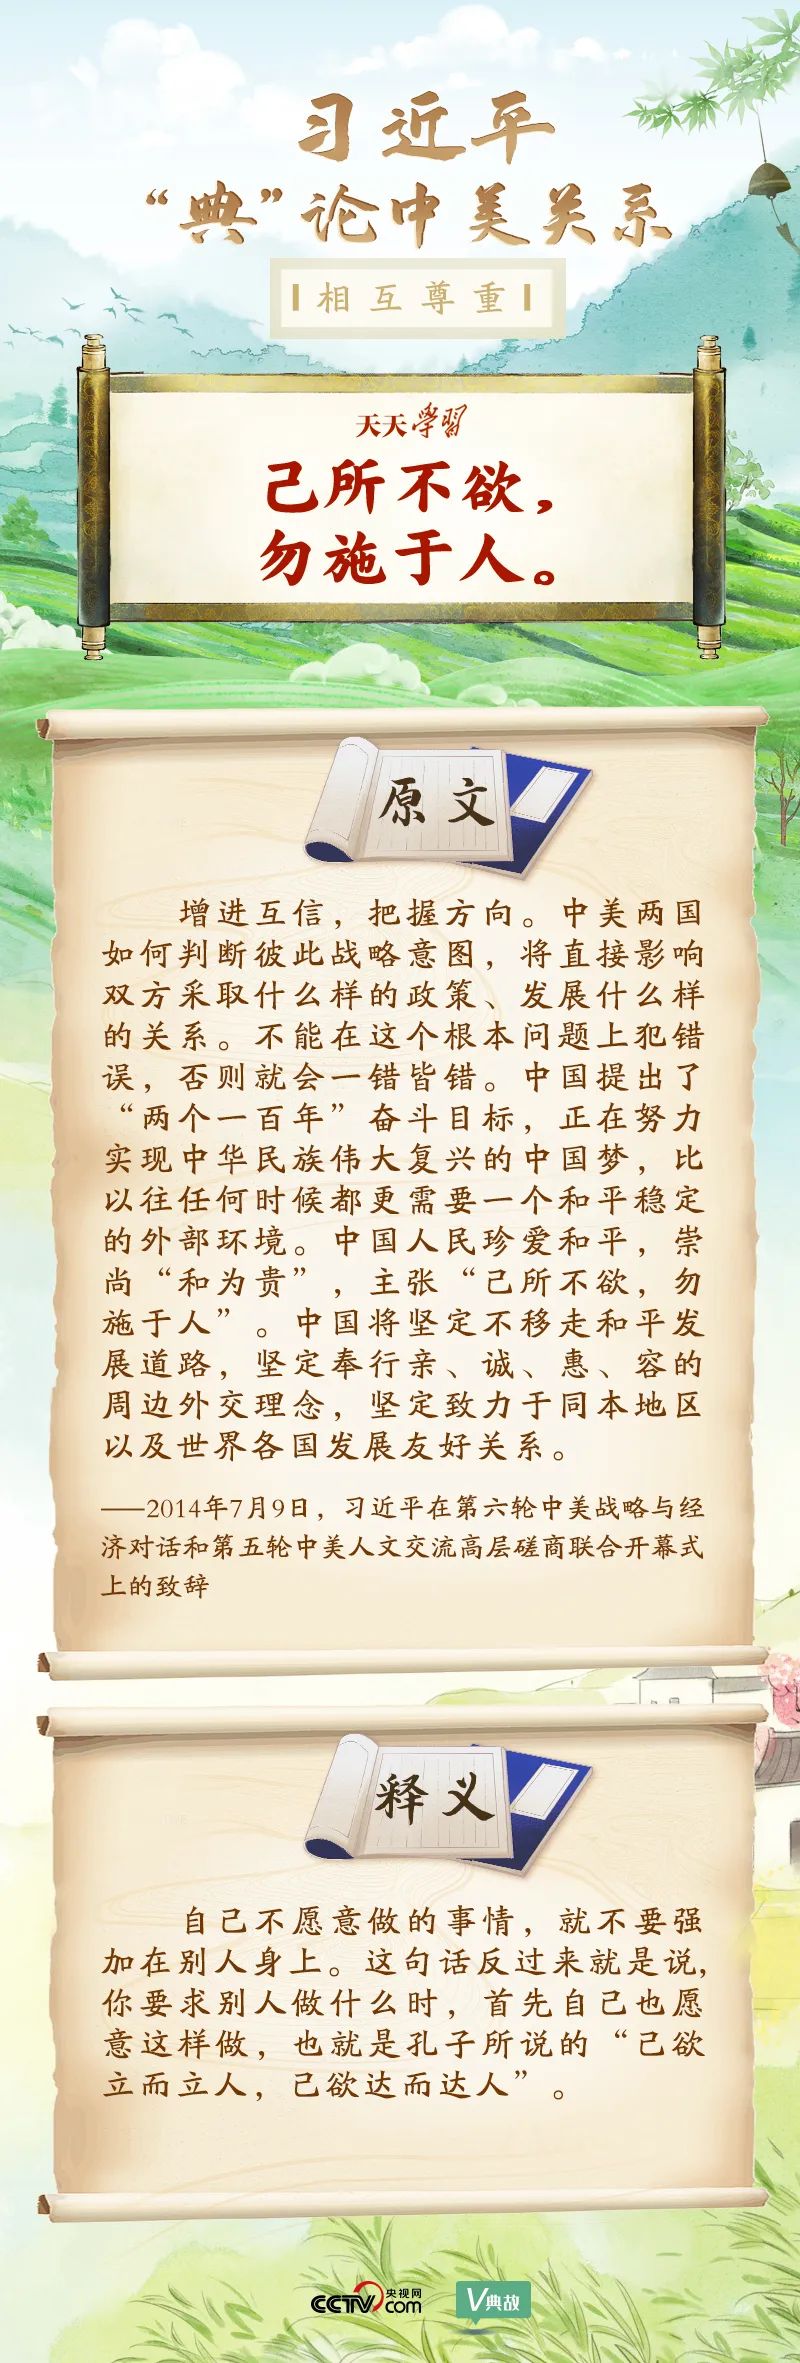 习近平
“典”论中美关系
相互尊重
天天學習
己所不欲，
勿施于人。
原文
增进互信，把握方向。中美两国
如何判断彼此战略意图，将直接影响
双方采取什么样的政策、发展什么样
的关系。不能在这个根本问题上犯错
误，否则就会一错皆错。中国提出了
“两个一百年”奋斗目标，正在努力
实现中华民族伟大复兴的中国梦，比
以往任何时候都更需要一个和平稳定
的外部环境。中国人民珍爱和平，崇
尚“和为贵”，主张“己所不欲，勿
施于人”。中国将坚定不移走和平发
展道路，坚定奉行亲、诚、惠、容的
周边外交理念，坚定致力于同本地区
以及世界各国发展友好关系。
——2014年7月9日，习近平在第六轮中美战略与经
济对话和第五轮中美人文交流高层磋商联合开幕式
上的致辞
释义
自己不愿意做的事情，就不要强
加在别人身上。这句话反过来就是说，
你要求别人做什么时，首先自己也愿
意这样做，也就是孔子所说的“己欲
立而立人，己欲达而达人”。
CCTV.com 央视网
V典故